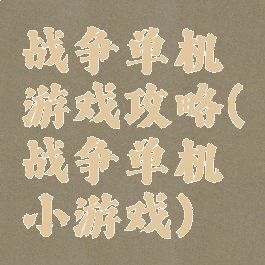 战争单机
游戏攻略(
战争单机
小游戏)